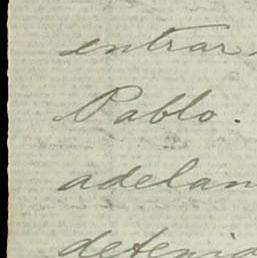 entrar
Pablo.
adelan
deteni